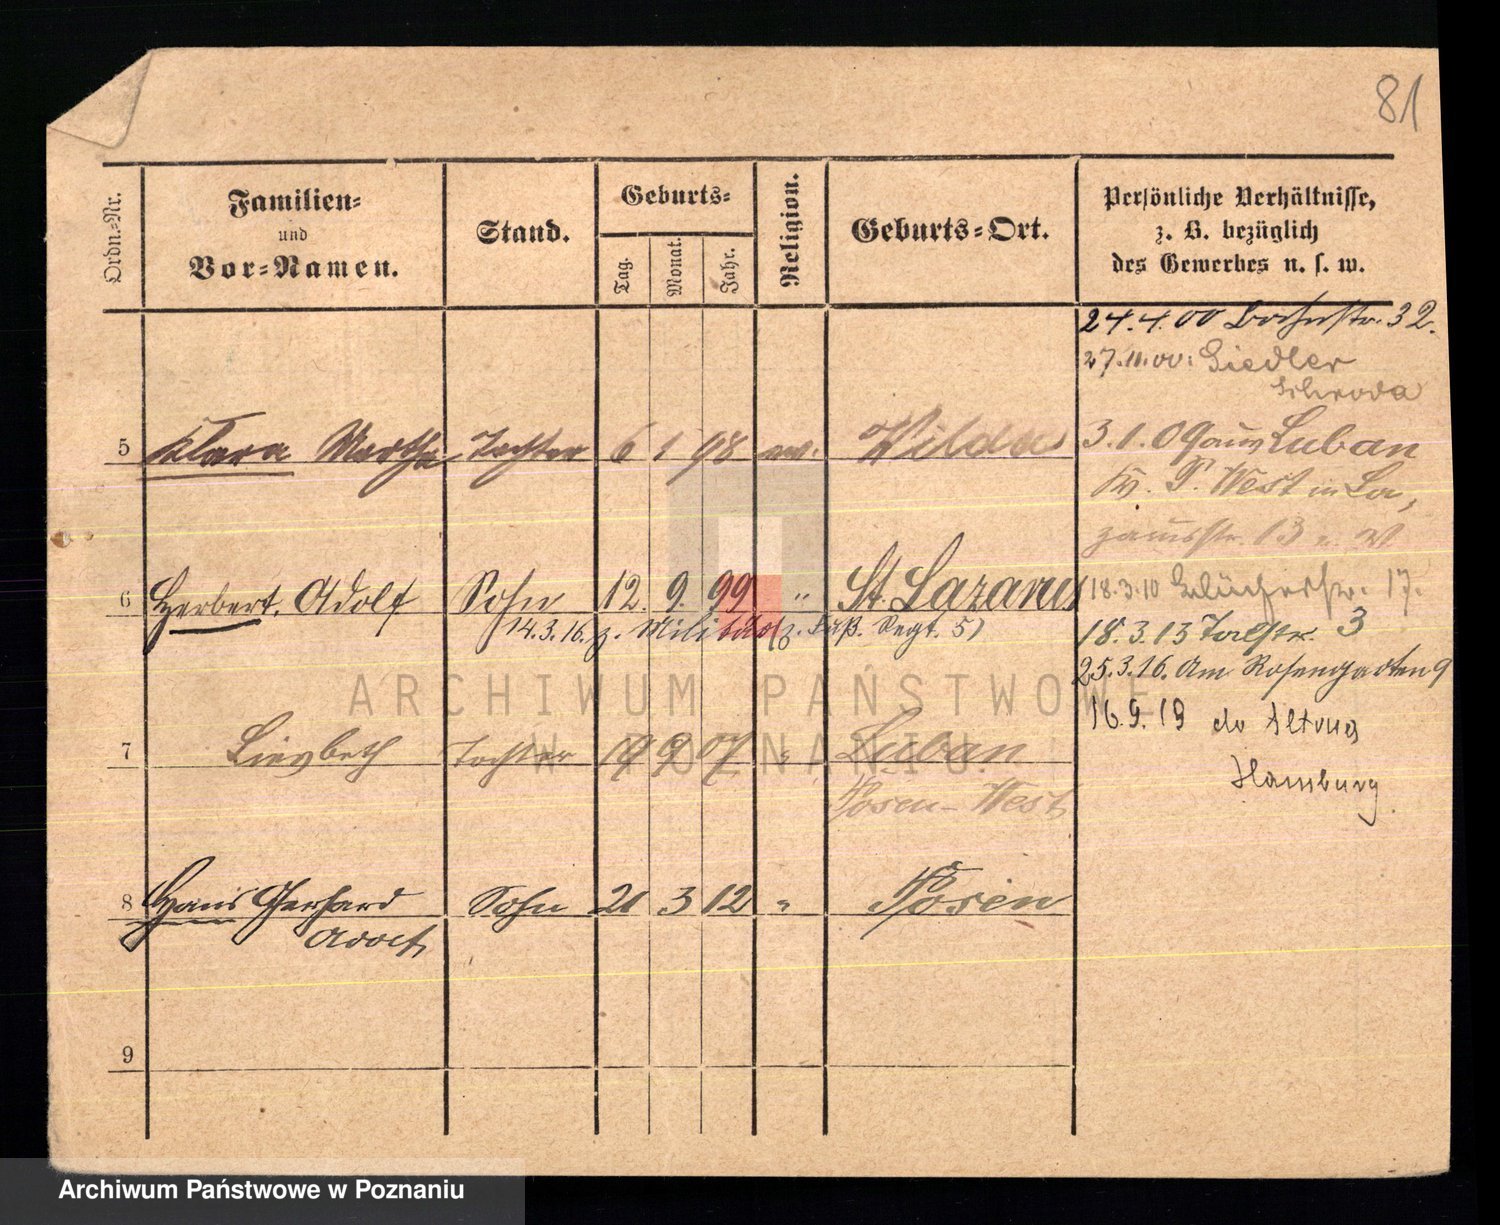 81
Ordn.-Nr.
Familien-
und
Vor-Namen.
Stand.
Geburts-
Tag.
Monat.
Jahr.
Religion.
Geburts-Ort.
Persönliche Verhältnisse,
z. B. bezüglich
des Gewerbes u. s. w.
24.4.00 32.
27.11.00: Siedler
Schroda
5 Klara Martha Tochter 6 1 98 ev. Wilda
3.1.09 aus Luban
P. West in La,
zarusstr. 13
6 Herbert. Adolf Sohn 12. 9. 99 " St. Lazarus
14.3.16. z. Militär (z. Fuß. Regt. 5)
18.3.10 Blücherstr. 17.
18.3.13 Talstr. 3
25.3.16. Am Rosengarten 9
16.9.19 do Altona
Hamburg
7 Liesbeth Tochter 9 07 " Luban
Posen-West
8 Hans Gerhard Sohn 21 3 12 " Posen
Adolf
9
ARCHIWUM PAŃSTWOWE
W POZNANIU
Archiwum Państwowe w Poznaniu